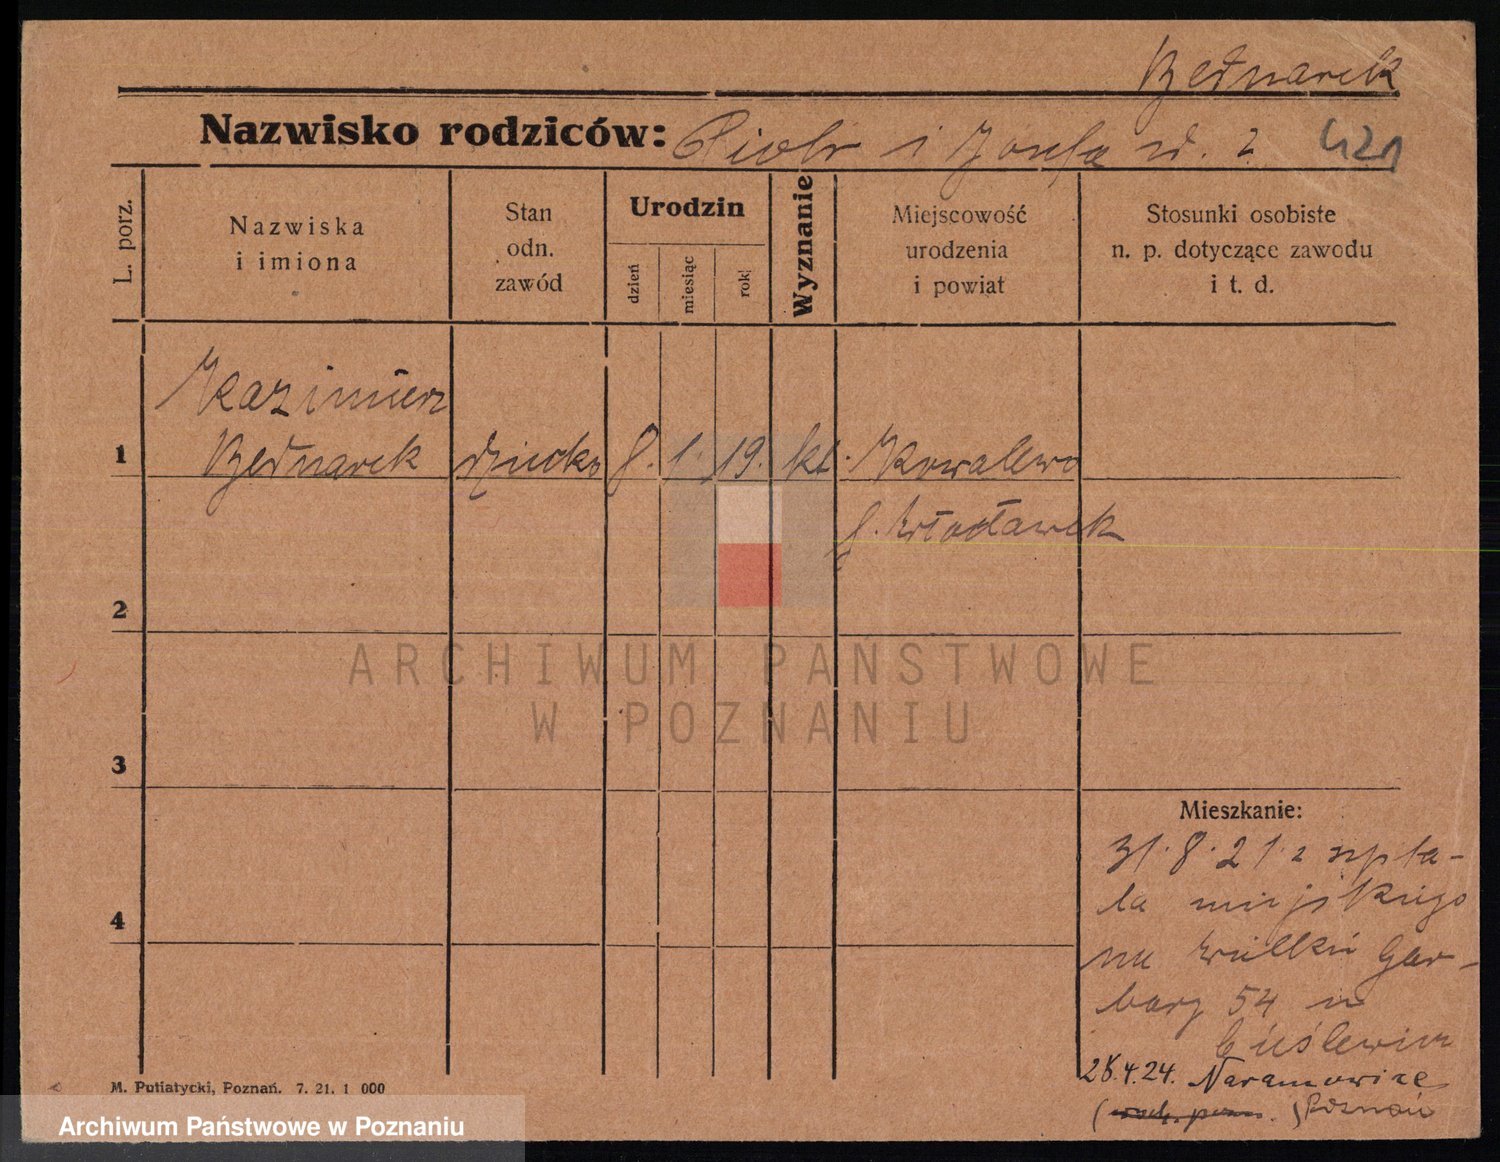 Bednarek
Nazwisko rodziców: Piotr i Józefa
421
L. porz.
Nazwiska
i imiona
Stan
odn.
zawód
Urodzin
dzień
miesiąc
rok
Wyznanie
Miejscowość
urodzenia
i powiat
Stosunki osobiste
n. p. dotyczące zawodu
i t. d.
Kazimierz
1 Bednarek dziecko 8. 1. 19. kt. Kowalewo
p. Włocławek
2
3
4
Mieszkanie:
31.8.21 z szpita-
la miejskiego
na Wielkie Gar-
bary 54 u
Cieślewicz
28.4.24. Naramowice
Poznań
M. Putiatycki, Poznań. 7. 21. 1 000
ARCHIWUM PAŃSTWOWE
W POZNANIU
Archiwum Państwowe w Poznaniu